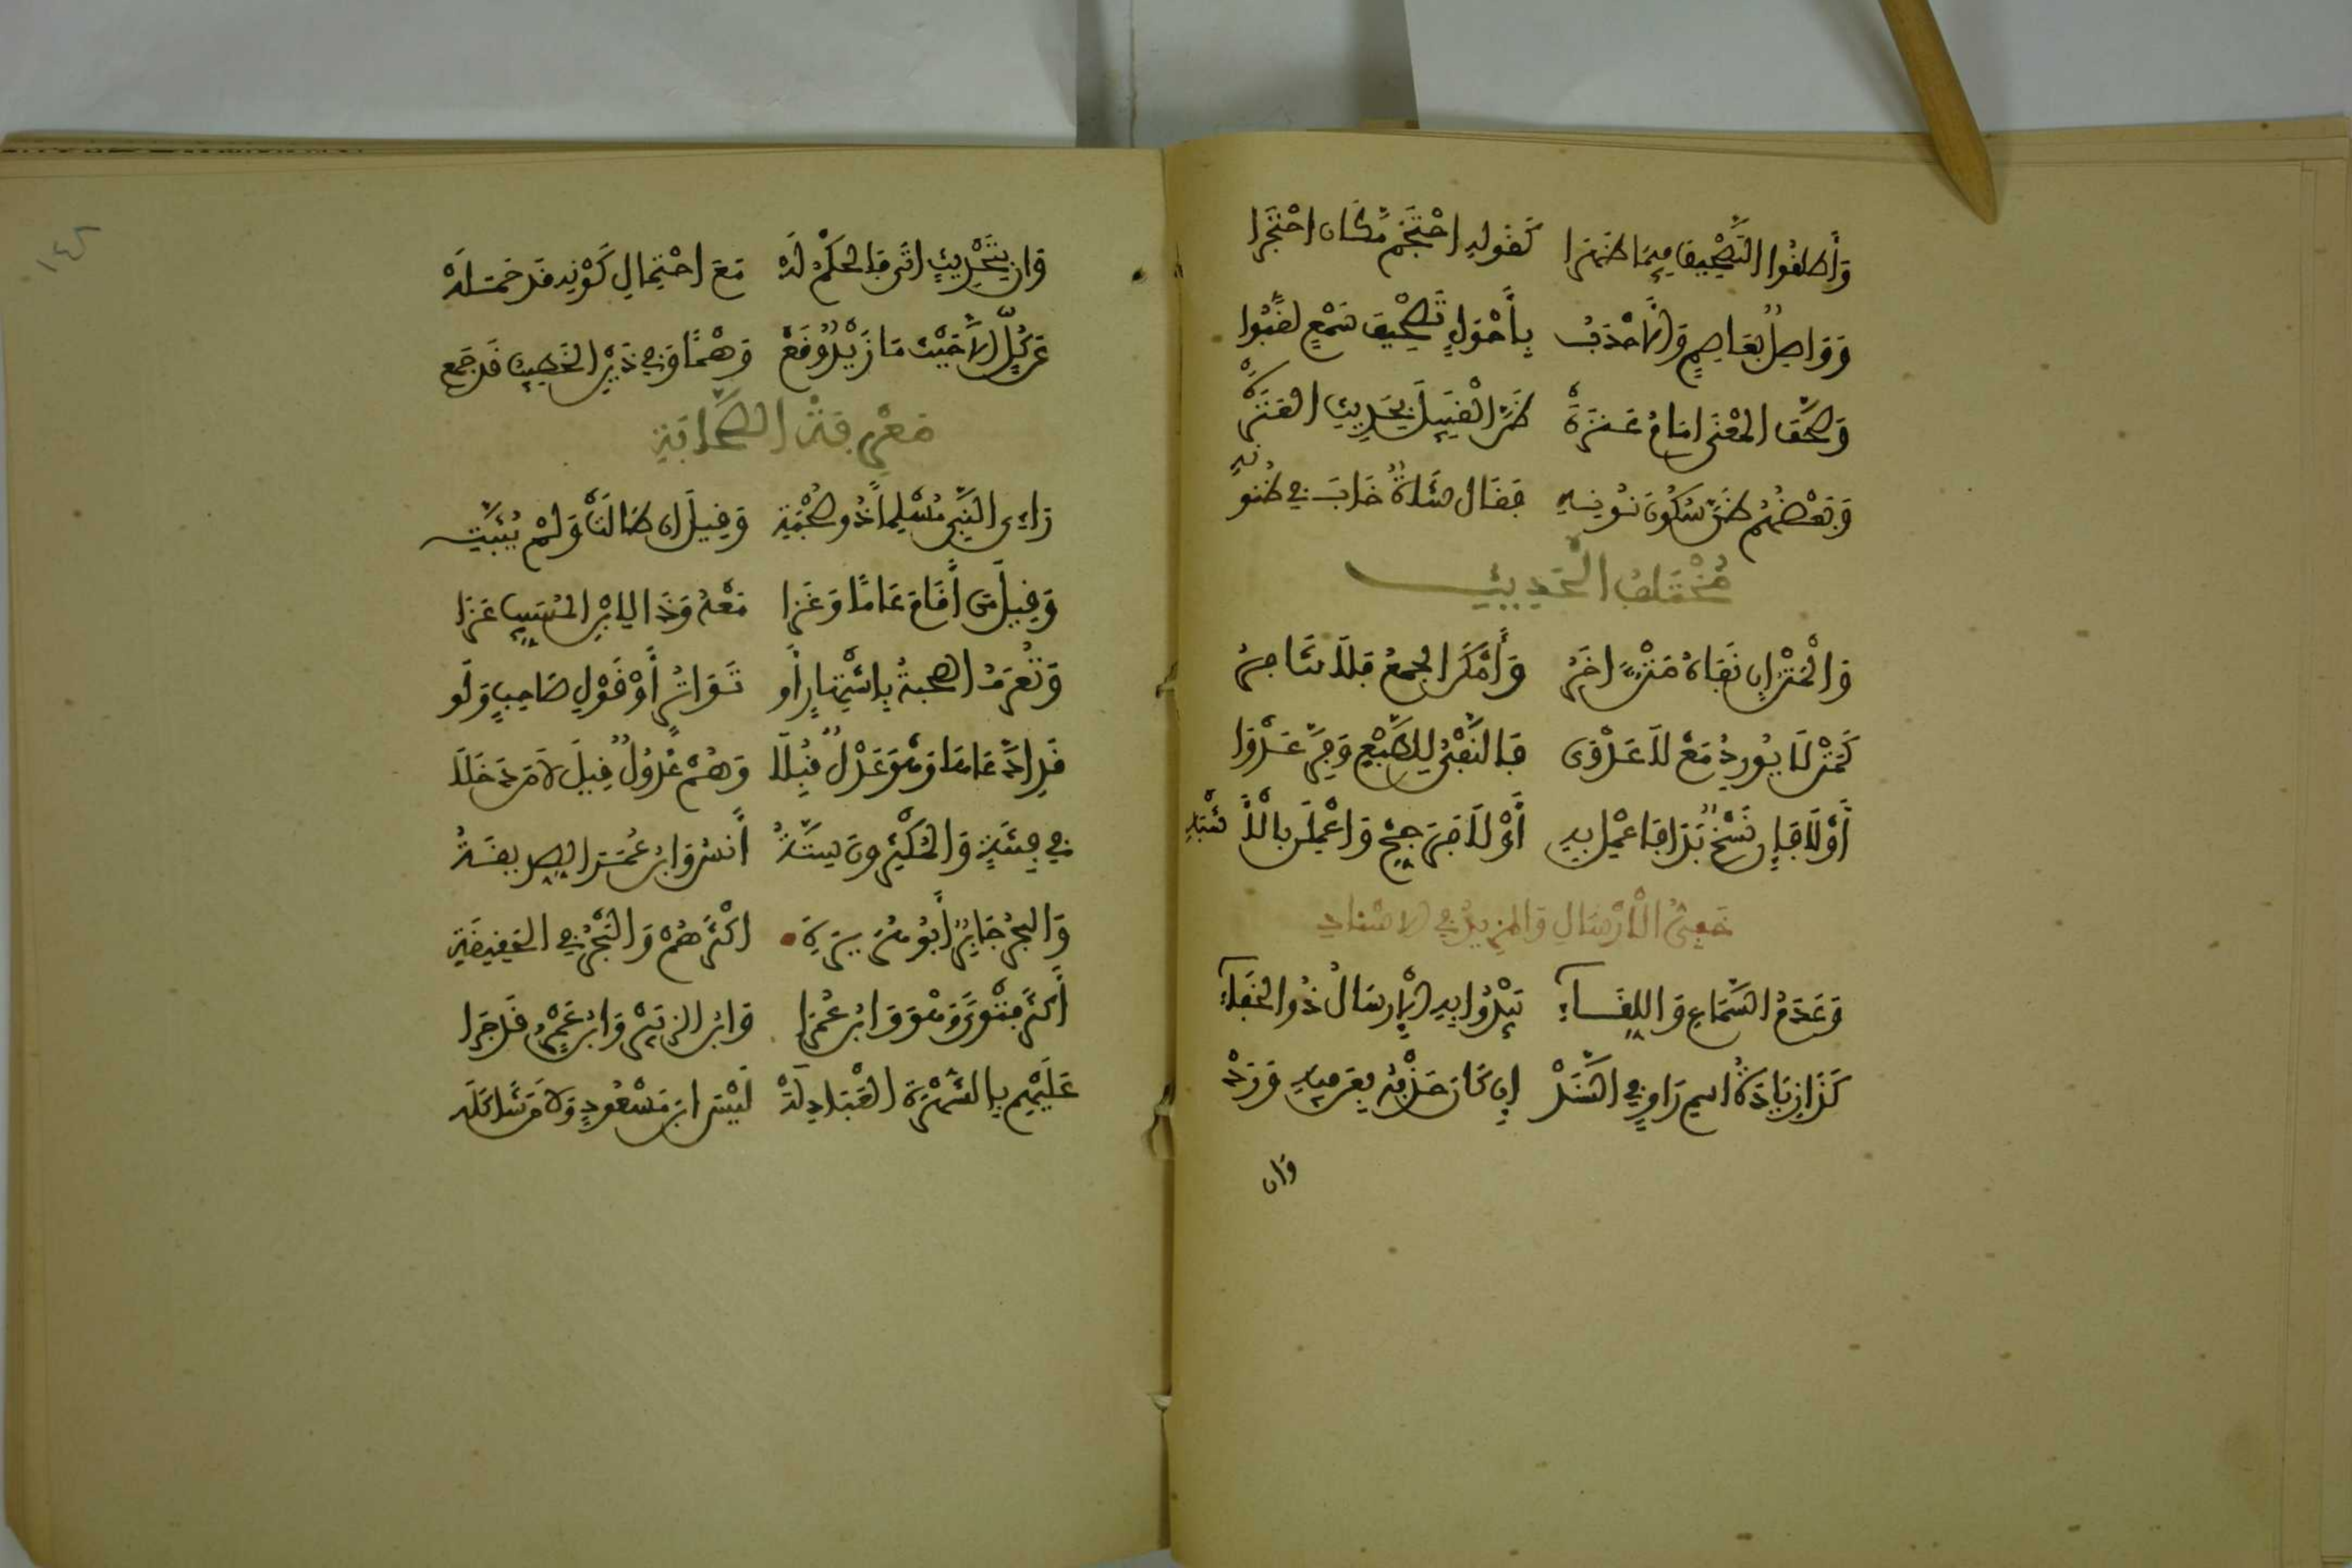 وَأَطْلَقُوا التَّصْحِيفَ فِيمَا ظَهَرَا كَقَوْلِهِ احْتَجَمْ مَكَان احْتَجَرا
وَوَاصِلٌ بِعَاصِمٍ وَالأَحْدَبُ بِأَحْوَلٍ تَصْحِيفَ سَمْعٍ لَقَّبُوا
وَصَحَّفَ المَعْنَى امَامُ عَنَزَهْ ظَنَّ القَبِيلَ بِحَدِيثِ العَنَزَهْ
وَبَعْضُهُمْ ظَنَّ سُكُونَ نُونِهِ فَقَال شَاةٌ خَابَ فِي ظُنُونِهِ
مُخْتَلِفُ الْحَدِيثِ
وَالْمَتْنُ إِن نَفَاهُ مَتْنٌ اخَرُ وَأَمْكَنَ الجَمْعُ فَلَا تَنَافِرُ
كَمَتْنِ لَا يُورِدُ مَعْ لَا عَدْوَى فَالنَّفْيُ لِلطَّبْعِ وَفِرَّ عَدْوَا
أَوْ لَا فَإِن نَسْخٌ بَدَا فَاعْمَلْ بِهِ أَوْ لَا فَرَجِّحْ وَاعْمَلَنْ بِالْأَشْبَهِ
خَفِيُّ الْأَرْسَالِ وَالمَزِيدُ فِي الاسْنَادِ
وَعَدَمُ السَّمَاعِ وَاللِّقَاءِ يَبْدُوا بِهِ الْإِرسَالُ ذُو الخَفَاءِ
كَذَا زِيَادَةُ اسمِ رَاوٍ فِي السَّنَدْ إِن كَانَ حَذْفُهُ بِعَن فِيهِ وَرَدْ
وَان
١٤٨
وَان بِتَحْدِيثٍ اتَى فَالحُكْمُ لَهْ مَعَ احْتِمَالِ كَوْنِهِ قَد حَمَلَهْ
عَن كُلٍّ الاَّ حَيْثُ مَا زَيْدٌ وَقَعْ وَهْمًا وَفِي ذَيْنِ الخَطِيبُ قَد جَمَع
مَعْرِفَةُ الصَّحَابَةِ
رَاءِي النَّبِي مُسْلِماً ذُو صُحْبَةِ وَقِيلَ ان طَالَتْ وَلَمْ يُثَبَّتِ
وَقِيلَ مَن أَقَامَ عَامًا وَغَزَا مَعْهُ وَذَا لِابْنِ المُسَيِّبِ عَزَا
وَتُعْرَفُ الصُّحبَةُ بِاشْتِهَارٍ أَو تَوَاتُرٍ أَوْ قَوْلِ صَاحِبٍ وَلَو
قَدِ ادَّعَاهَا وَهْوَ عَدْلٌ قُبِلَا وَهُمْ عُدُولٌ قِيلَ لا مَن دَخَلَا
فِي فِتْنَةٍ وَالمُكْثِرُونَ سِتَّةُ أَنَسُ وَابنُ عُمَرَ الصِّدِّيقَةُ
وَالبَحْرُ جَابِرٌ أَبُو هُرَيْرَةِ اكْثَرُهُمْ وَالبَحْرُ فِي الحَقِيقَةِ
أَكْثَرُ فَتْوَى وَهْوَ وَابْنُ عُمَرَا وَابْنُ الزُّبَيْرِ وَابْنُ عَمْرٍو قَد جَرَا
عَلَيْهِمِ بِالشُّهْرَةِ العَبَادِلَهْ لَيْسَ ابنَ مَسْعُودٍ وَلا مَن شَاكَلَه